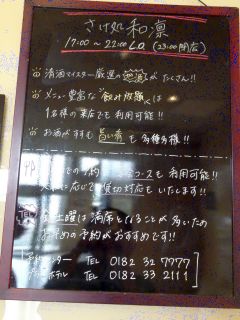 さけ処 和凛
17:00～22:00 L.O. (23:00閉店)
清酒マイスター厳選の地酒がたくさん!!
メニュー豊富な"飲み放題"は
1名様の来店でも利用可能!!
お酒がすすむ旨い肴も多種多様!!
での予約 コースも利用可能!!
人数に応じて貸切対応もいたします!!
土曜は満席となることが多いため
お早めの予約がおすすめです!!
ンター TEL 0182 32 7777
ホテル TEL 0182 33 2111